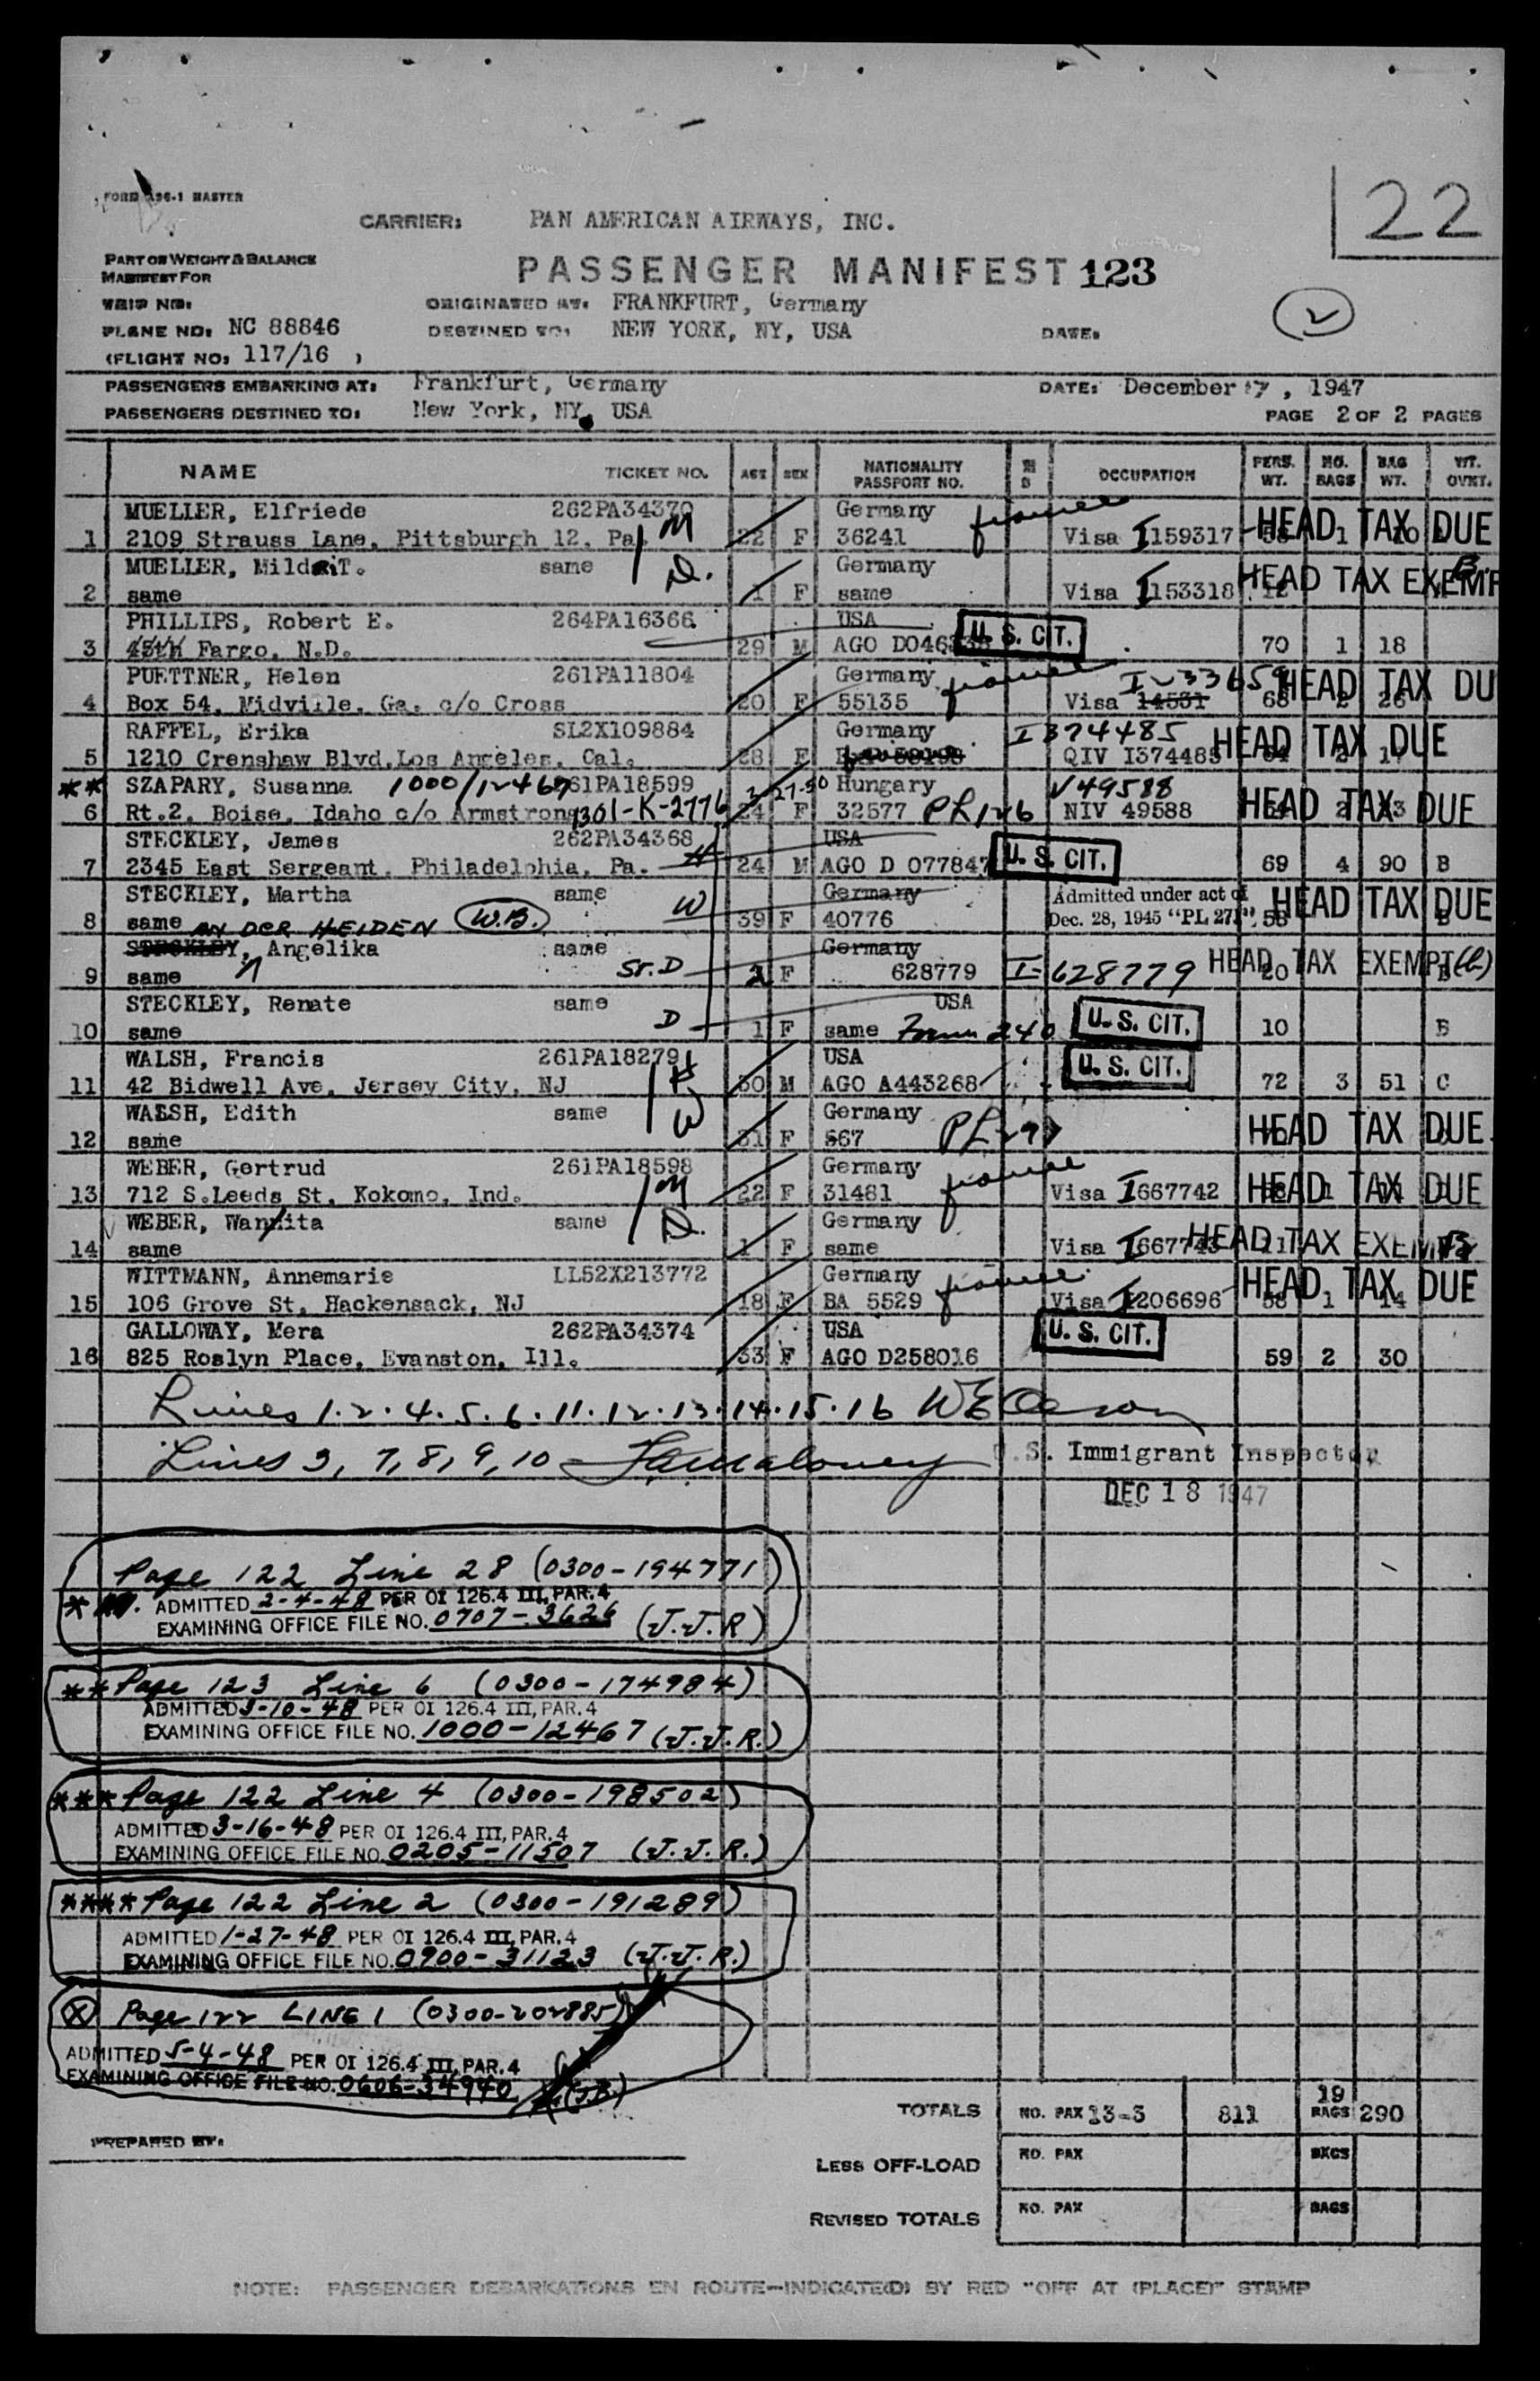 FORM 196-1 MASTER
22
CARRIER: PAN AMERICAN AIRWAYS, INC.
PART OR WEIGHT & BALANCE
MANIFEST FOR
PASSENGER MANIFEST 123
TRIP NO:
ORIGINATED AT: FRANKFURT, Germany
PLANE NO: NC 88846
DESTINED TO: NEW YORK, NY, USA
DATE:
(FLIGHT NO: 117/16 )
PASSENGERS EMBARKING AT: Frankfurt, Germany
DATE: December 17, 1947
PASSENGERS DESTINED TO: New York, NY, USA
PAGE 2 OF 2 PAGES
NAME TICKET NO. AGE SEX NATIONALITY PASSPORT NO. OCCUPATION PERS. WT. NO. BAGS BAG WT. WT. OVWT.
MUELLER, Elfriede 262PA34370 M Germany fiancee
1 2109 Strauss Lane, Pittsburgh 12, Pa. 22 F 36241 Visa I159317 HEAD TAX DUE
MUELLER, Mild T. same D. Germany
2 same 1 F same Visa I153318 12 HEAD TAX EXEMP
PHILLIPS, Robert E. 264PA16366 USA
3 Fargo, N.D. 29 M AGO D046 U.S. CIT. 70 1 18
PUETTNER, Helen 261PA11804 Germany fiancee I-33659
4 Box 54, Midville, Ga. c/o Cross 20 F 55135 Visa 14531 68 2 26 HEAD TAX DU
RAFFEL, Erika SL2X109884 Germany I374485
5 1210 Crenshaw Blvd, Los Angeles, Cal. 28 F QIV I374485 HEAD TAX DUE
** SZAPARY, Susanna 1000/12467 261PA18599 Hungary V49588
6 Rt.2, Boise, Idaho c/o Armstrong 1301-K-2776 24 F 32577 NIV 49588 HEAD TAX DUE
STECKLEY, James 262PA34368 USA
7 2345 East Sergeant, Philadelphia, Pa. H 24 M AGO D 077847 U.S. CIT. 69 4 90 B
STECKLEY, Martha same W Germany Admitted under act of
8 same 39 F 40776 Dec. 28, 1945 "PL 271" 58 HEAD TAX DUE
AN DER HEIDEN (W.B.)
STECKLEY, Angelika same Germany
9 same St.D 2 F 628779 I-628779 20 HEAD TAX EXEMPT
STECKLEY, Renate same USA
10 same D 1 F same Form 240 U.S. CIT. 10 B
WALSH, Francis 261PA18279 H USA
11 42 Bidwell Ave. Jersey City, NJ 30 M AGO A443268 U.S. CIT. 72 3 51 C
WALSH, Edith same W Germany
12 same 31 F 567 HEAD TAX DUE
WEBER, Gertrud 261PA18598 M Germany fiancee
13 712 S.Leeds St. Kokomo, Ind. 22 F 31481 Visa I667742 HEAD TAX DUE
WEBER, Wannita same D. Germany
14 same 1 F same Visa I667743 11 HEAD TAX EXEMPT
WITTMANN, Annemarie LL52X213772 Germany fiancee
15 106 Grove St. Hackensack, NJ 18 F BA 5529 Visa I206696 58 1 14 HEAD TAX DUE
GALLOWAY, Mera 262PA34374 USA
16 825 Roslyn Place, Evanston, Ill. 33 F AGO D258016 U.S. CIT. 59 2 30
Lines 1.2.4.5.6.11.12.13.14.15.16
Lines 3, 7, 8, 9, 10
U.S. Immigrant Inspector
DEC 18 1947
Page 122 Line 28 (0300-194771)
* ADMITTED 2-4-48 PER OI 126.4 III, PAR. 4
EXAMINING OFFICE FILE NO. 0707-3626 (J.J.R)
** Page 123 Line 6 (0300-174984)
ADMITTED 3-10-48 PER OI 126.4 III, PAR. 4
EXAMINING OFFICE FILE NO. 1000-12467 (J.J.R.)
*** Page 122 Line 4 (0300-198502)
ADMITTED 3-16-48 PER OI 126.4 III, PAR. 4
EXAMINING OFFICE FILE NO. 0205-11507 (J.J.R.)
**** Page 122 Line 2 (0300-191289)
ADMITTED 1-27-48 PER OI 126.4 III, PAR. 4
EXAMINING OFFICE FILE NO. 0900-31123 (J.J.R.)
Ⓧ Page 122 LINE 1 (0300-202885)
ADMITTED 5-4-48 PER OI 126.4 III, PAR. 4
EXAMINING OFFICE FILE NO. 0606-34940 (J.B.)
TOTALS NO. PAX 13-3 811 19 BAGS 290
PREPARED BY:
LESS OFF-LOAD NO. PAX BAGS
REVISED TOTALS NO. PAX BAGS
NOTE: PASSENGER DEBARKATIONS EN ROUTE—INDICATE(D) BY RED "OFF AT (PLACE)" STAMP